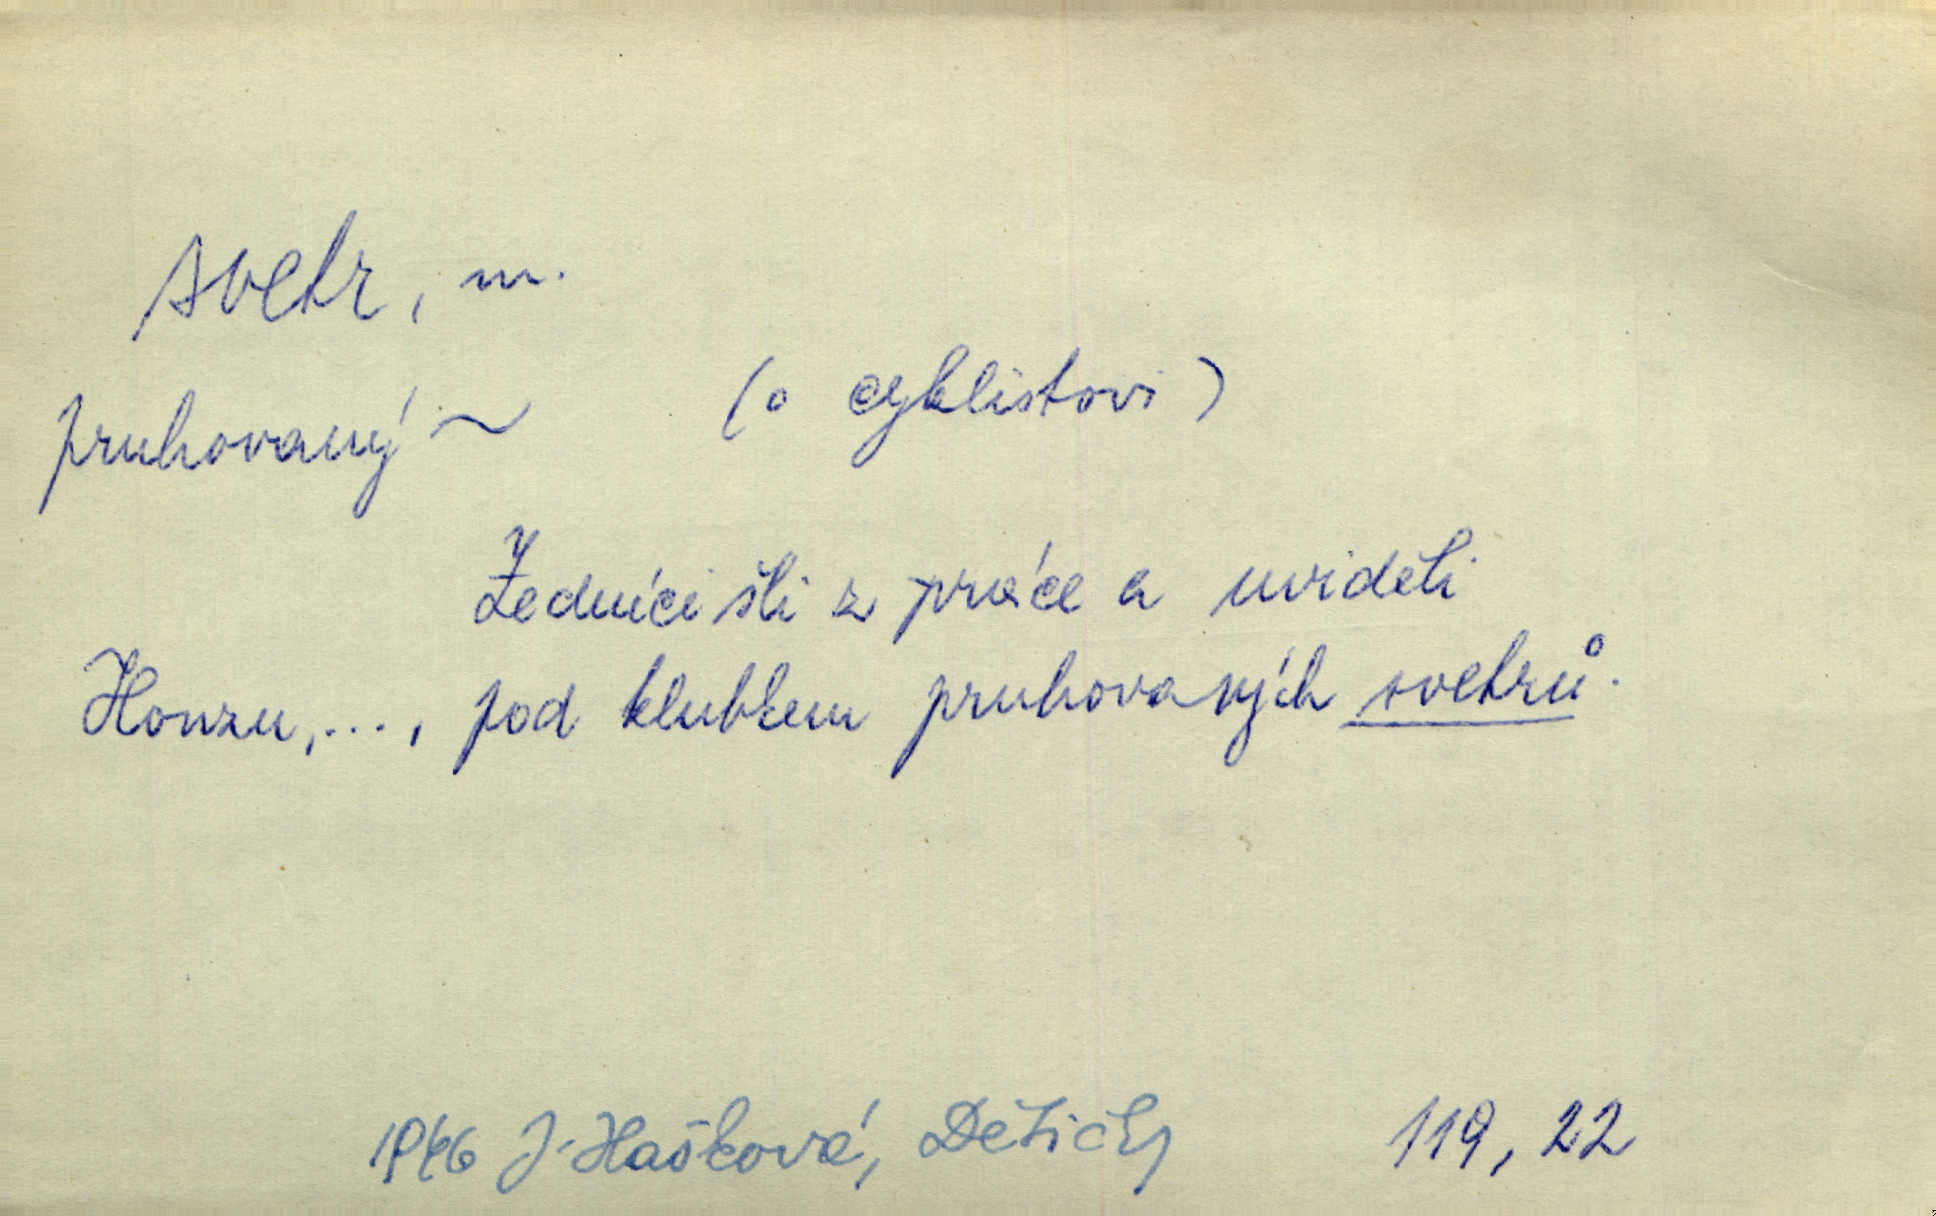 svetr, m.
pruhovaný ~ (o cyklistovi)
Zedníci šli z práce a uviděli
Honzu, ..., pod klubkem pruhovaných svetrů.
1946 J. Hašková, Dětičky 119, 22